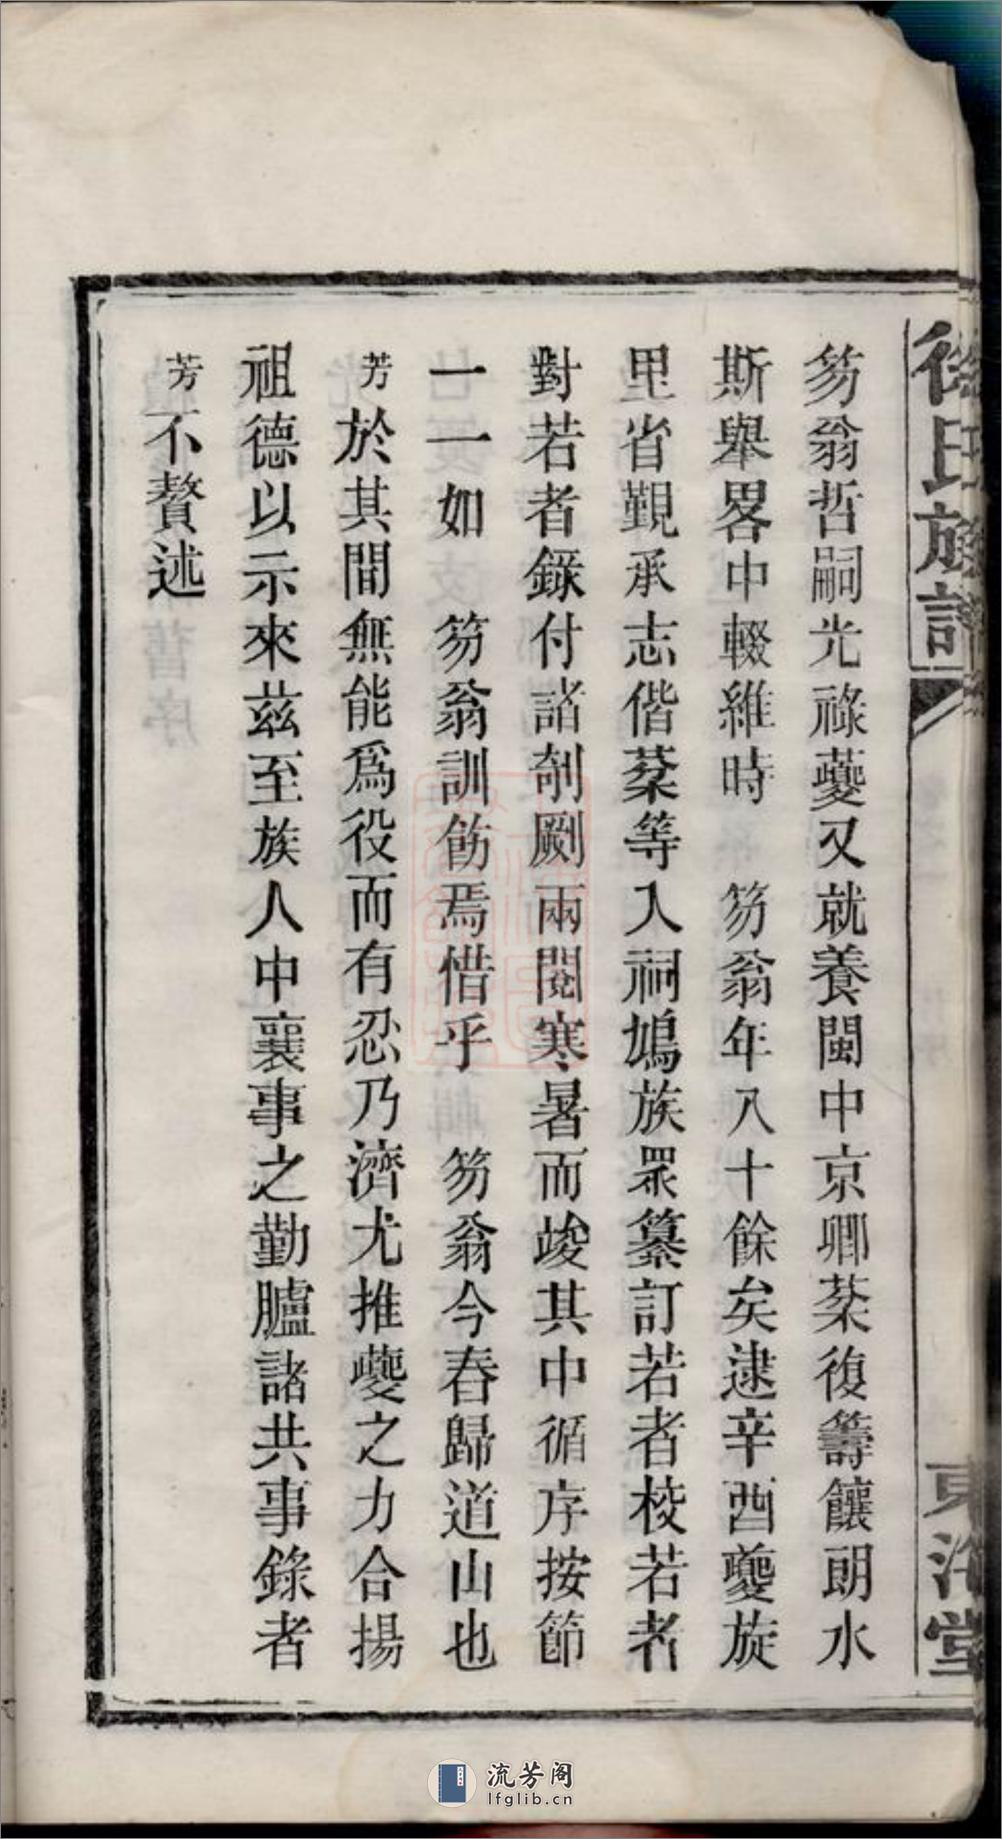 徐氏族譜
東海堂
笏翁哲嗣光祿夔又就養閩中京卿棻復籌饟朔水
斯舉畧中輟維時 笏翁年八十餘矣逮辛酉夔旋
里省覲承志偕棻等入祠鳩族眾纂訂若者校若者
對若者錄付諸剞劂兩閱寒暑而竣其中循序按節
一一如 笏翁訓飭焉惜乎 笏翁今春歸道山也
芳於其間無能爲役而有忍乃濟尤推夔之力合揚
祖德以示來茲至族人中襄事之勤臚諸共事錄者
芳不贅述
流芳阁
lfglib.cn